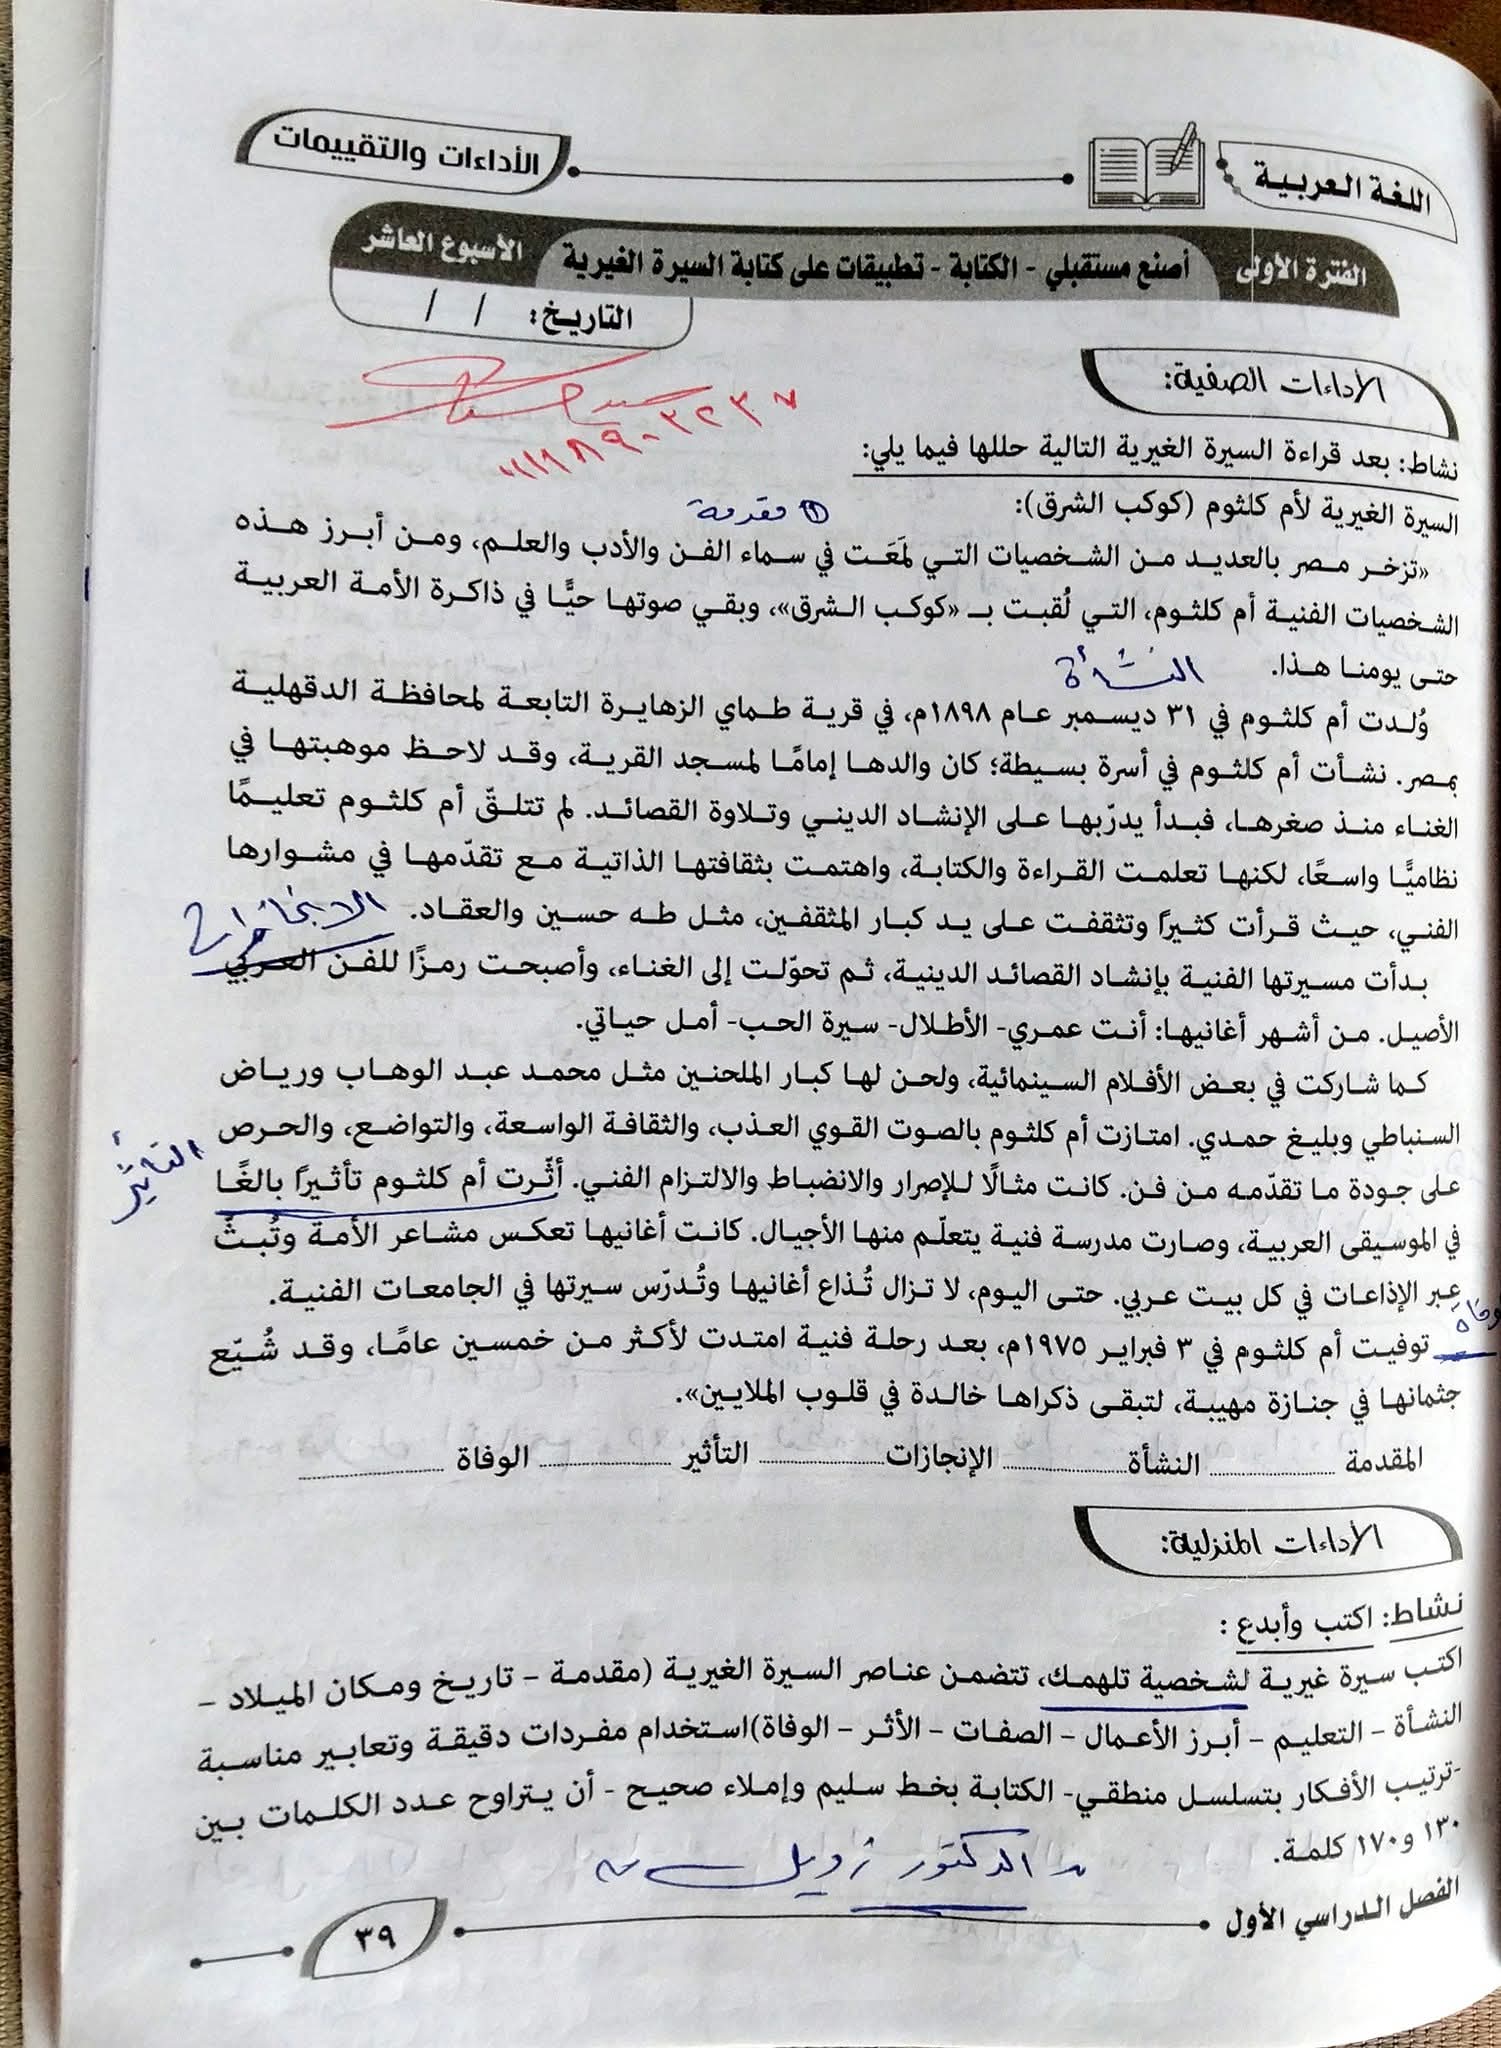 اللغة العربية
الأداءات والتقييمات
الفترة الأولى
أصنع مستقبلي - الكتابة - تطبيقات على كتابة السيرة الغيرية
الأسبوع العاشر
التاريخ: / /
الأداءات الصفية:
نشاط: بعد قراءة السيرة الغيرية التالية حللها فيما يلي:
السيرة الغيرية لأم كلثوم (كوكب الشرق):
① مقدمة
«تزخر مصر بالعديد من الشخصيات التي لمَعَت في سماء الفن والأدب والعلم، ومن أبرز هذه
الشخصيات الفنية أم كلثوم، التي لُقبت بـ «كوكب الشرق»، وبقي صوتها حيًّا في ذاكرة الأمة العربية
حتى يومنا هذا.
النشأة
وُلدت أم كلثوم في ٣١ ديسمبر عام ١٨٩٨م، في قرية طماي الزهايرة التابعة لمحافظة الدقهلية
بمصر. نشأت أم كلثوم في أسرة بسيطة؛ كان والدها إمامًا لمسجد القرية، وقد لاحظ موهبتها في
الغناء منذ صغرها، فبدأ يدرّبها على الإنشاد الديني وتلاوة القصائد. لم تتلقّ أم كلثوم تعليمًا
نظاميًّا واسعًا، لكنها تعلمت القراءة والكتابة، واهتمت بثقافتها الذاتية مع تقدّمها في مشوارها
الفني، حيث قرأت كثيرًا وتثقفت على يد كبار المثقفين، مثل طه حسين والعقاد.
بدأت مسيرتها الفنية بإنشاد القصائد الدينية، ثم تحوّلت إلى الغناء، وأصبحت رمزًا للفن العربي
الأصيل. من أشهر أغانيها: أنت عمري- الأطلال- سيرة الحب- أمل حياتي.
كما شاركت في بعض الأفلام السينمائية، ولحن لها كبار الملحنين مثل محمد عبد الوهاب ورياض
السنباطي وبليغ حمدي. امتازت أم كلثوم بالصوت القوي العذب، والثقافة الواسعة، والتواضع، والحرص
التأثير
على جودة ما تقدّمه من فن. كانت مثالًا للإصرار والانضباط والالتزام الفني. أثّرت أم كلثوم تأثيرًا بالغًا
في الموسيقى العربية، وصارت مدرسة فنية يتعلّم منها الأجيال. كانت أغانيها تعكس مشاعر الأمة وتُبثّ
عبر الإذاعات في كل بيت عربي. حتى اليوم، لا تزال تُذاع أغانيها وتُدرّس سيرتها في الجامعات الفنية.
وفاة
توفيت أم كلثوم في ٣ فبراير ١٩٧٥م، بعد رحلة فنية امتدت لأكثر من خمسين عامًا، وقد شُيّع
جثمانها في جنازة مهيبة، لتبقى ذكراها خالدة في قلوب الملايين».
المقدمة ............ النشأة ............ الإنجازات ............ التأثير ............ الوفاة ............
الأداءات المنزلية:
نشاط: اكتب وأبدع :
اكتب سيرة غيرية لشخصية تلهمك، تتضمن عناصر السيرة الغيرية (مقدمة - تاريخ ومكان الميلاد -
النشأة - التعليم - أبرز الأعمال - الصفات - الأثر - الوفاة)استخدام مفردات دقيقة وتعابير مناسبة
-ترتيب الأفكار بتسلسل منطقي- الكتابة بخط سليم وإملاء صحيح - أن يتراوح عدد الكلمات بين
١٣٠ و١٧٠ كلمة.
الدكتور زويل
الفصل الدراسي الأول
٣٩